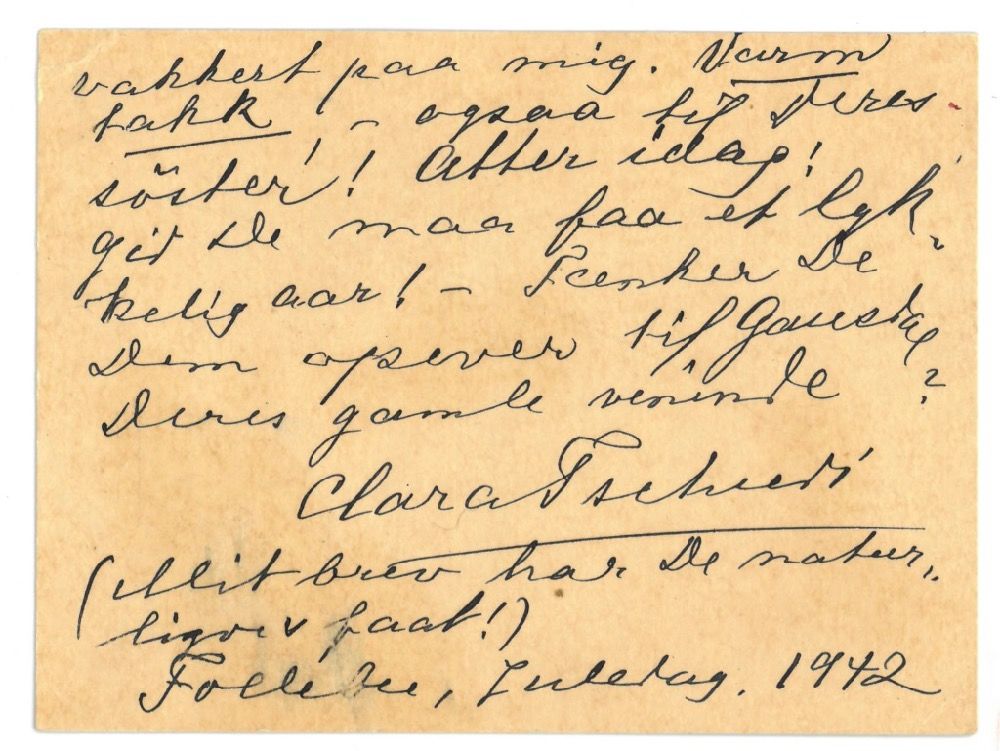 vakkert paa mig. Varm
takk! – ogsaa til Deres
söster! Atter idag!
gid De maa faa et lyk-
kelig aar! – Tænker De
Dem opover til Gausdal?
Deres gamle veninde
Clara Tschudi
(Mit brev har De natur-
ligvis faat!)
Follebu, Juledag. 1942